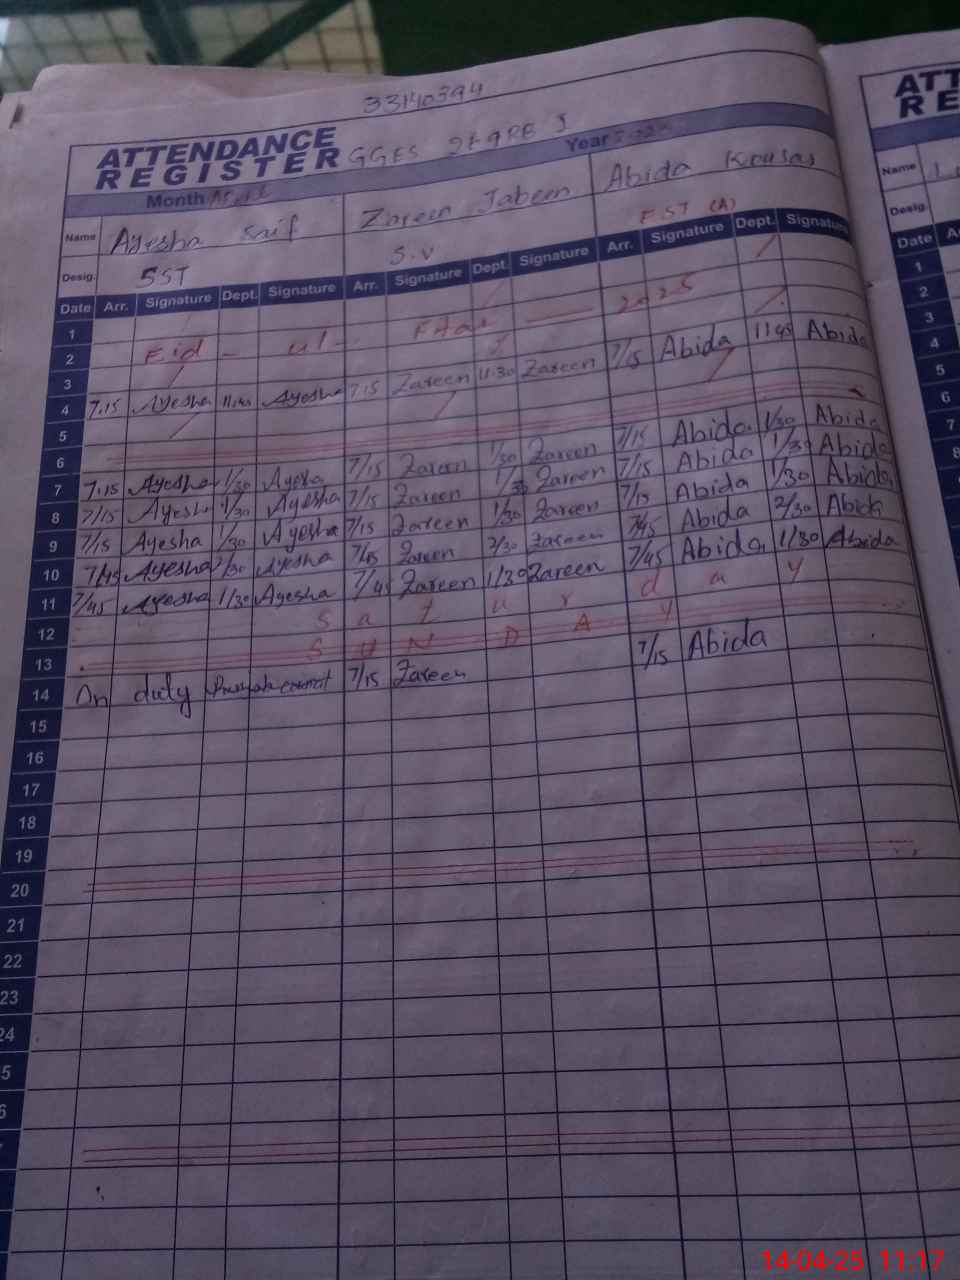 33140394
ATTENDANCE
REGISTER GGES
Month April Year
Name Ayesha Saif Zareen Jabeen Abida Kousar
Desig. SST S.V EST (A)
Date Arr. Signature Dept. Signature Arr. Signature Dept. Signature Arr. Signature Dept. Signature
1
2 Eid - ul - Fitar 2025
3
4 7.15 Ayesha Ayesha 7.15 Zareen 11.30 Zareen 7/15 Abida 11 45 Abida
5
6
7 7.15 Ayesha 1/30 Ayesha 7/15 Zareen 1/30 Zareen 7/15 Abida 1/30 Abida
8 7/15 Ayesha 1/30 Ayesha 7/15 Zareen 1/30 Zareen 7/15 Abida 1/30 Abida
9 7/15 Ayesha 1/30 Ayesha 7/15 Zareen 1/30 Zareen 7/15 Abida 1/30 Abida
10 7/45 Ayesha 2/30 Ayesha 7/45 Zareen 2/30 Zareen 7/45 Abida 2/30 Abida
11 7/45 Ayesha 1/30 Ayesha 7/45 Zareen 1/30 Zareen 7/45 Abida 1/30 Abida
12 S a t u r d a y
13 S U N D A Y
14 On duty 7/15 Zareen 7/15 Abida
15
16
17
18
19
20
21
22
23
24
5
6
ATT
RE
Name
Desig.
Date
1
2
3
4
5
6
7
8
14-04-25 11:17